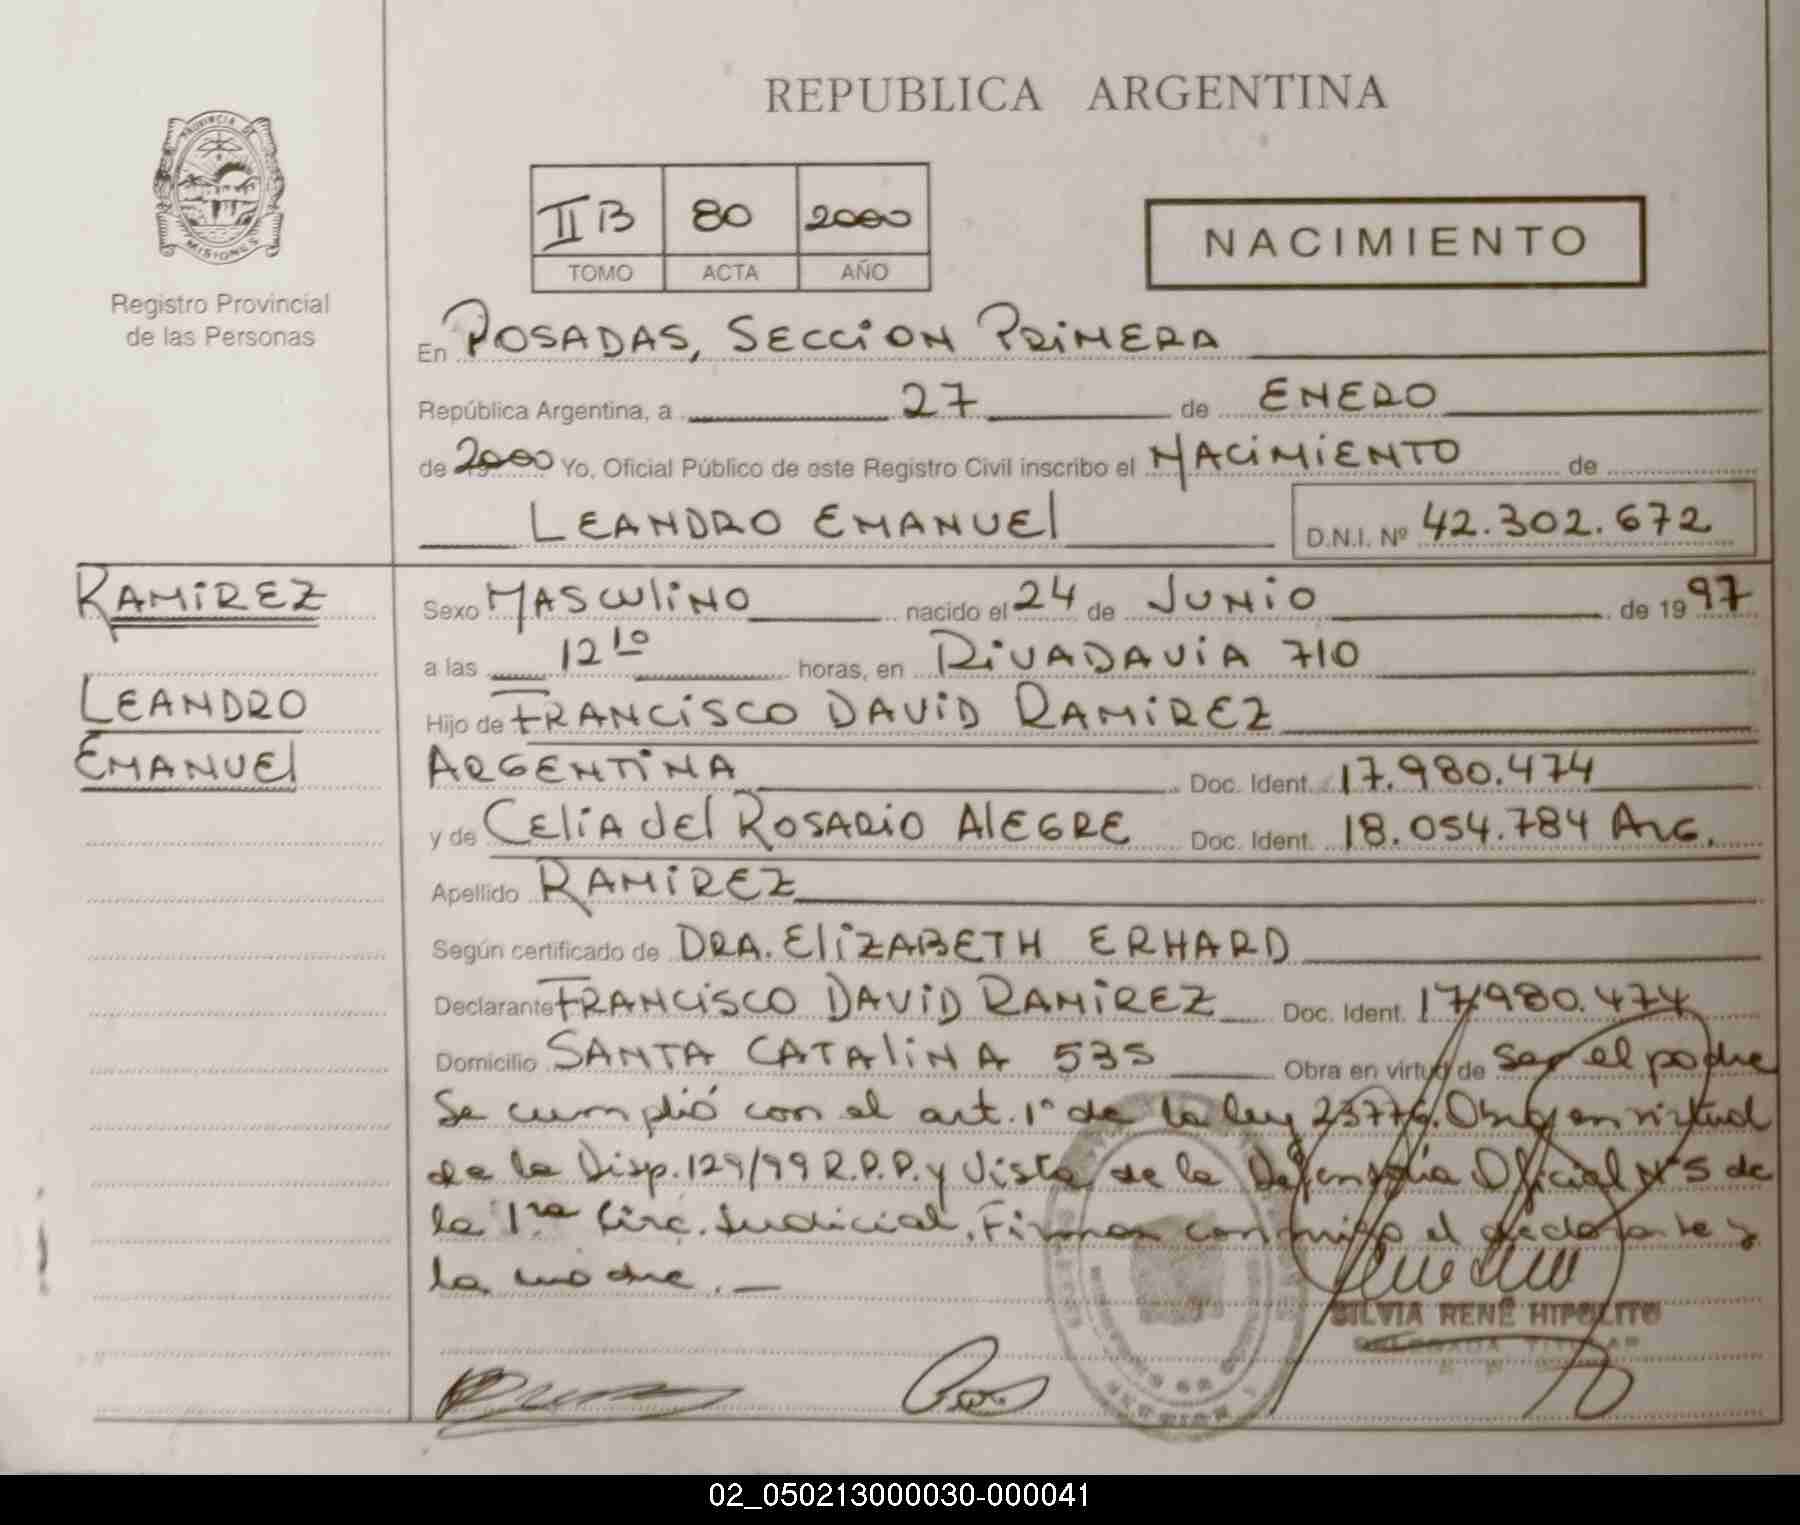 REPUBLICA ARGENTINA
PROVINCIA DE
MISIONES
Registro Provincial
de las Personas
II B 80 2000
TOMO ACTA AÑO
NACIMIENTO
En POSADAS, SECCION PRIMERA
República Argentina, a 27 de ENERO
de 2000 Yo, Oficial Público de este Registro Civil inscribo el NACIMIENTO de
LEANDRO EMANUEL D.N.I. Nº 42.302.672
RAMIREZ
LEANDRO
EMANUEL
Sexo MASCULINO nacido el 24 de JUNIO de 1997
a las 12 10 horas, en RIVADAVIA 710
Hijo de FRANCISCO DAVID RAMIREZ
ARGENTINA Doc. Ident. 17.980.474
y de CELIA del ROSARIO ALEGRE Doc. Ident. 18.054.784 ARG.
Apellido RAMIREZ
Según certificado de DRA. ELIZABETH ERHARD
Declarante FRANCISCO DAVID RAMIREZ Doc. Ident. 17.980.474
Domicilio SANTA CATALINA 535 Obra en virtud de ser el padre
Se cumplió con el art. 1º de la ley 23776. Obra en virtud
de la Disp. 129/99 R.P.P. y Vista de la Defensoría Oficial Nº 5 de
la 1ra Circ. Judicial. Firman conmigo el declarante y
la madre. —
SILVIA RENÉ HIPOLITO
DELEGADA TITULAR
02_050213000030-000041